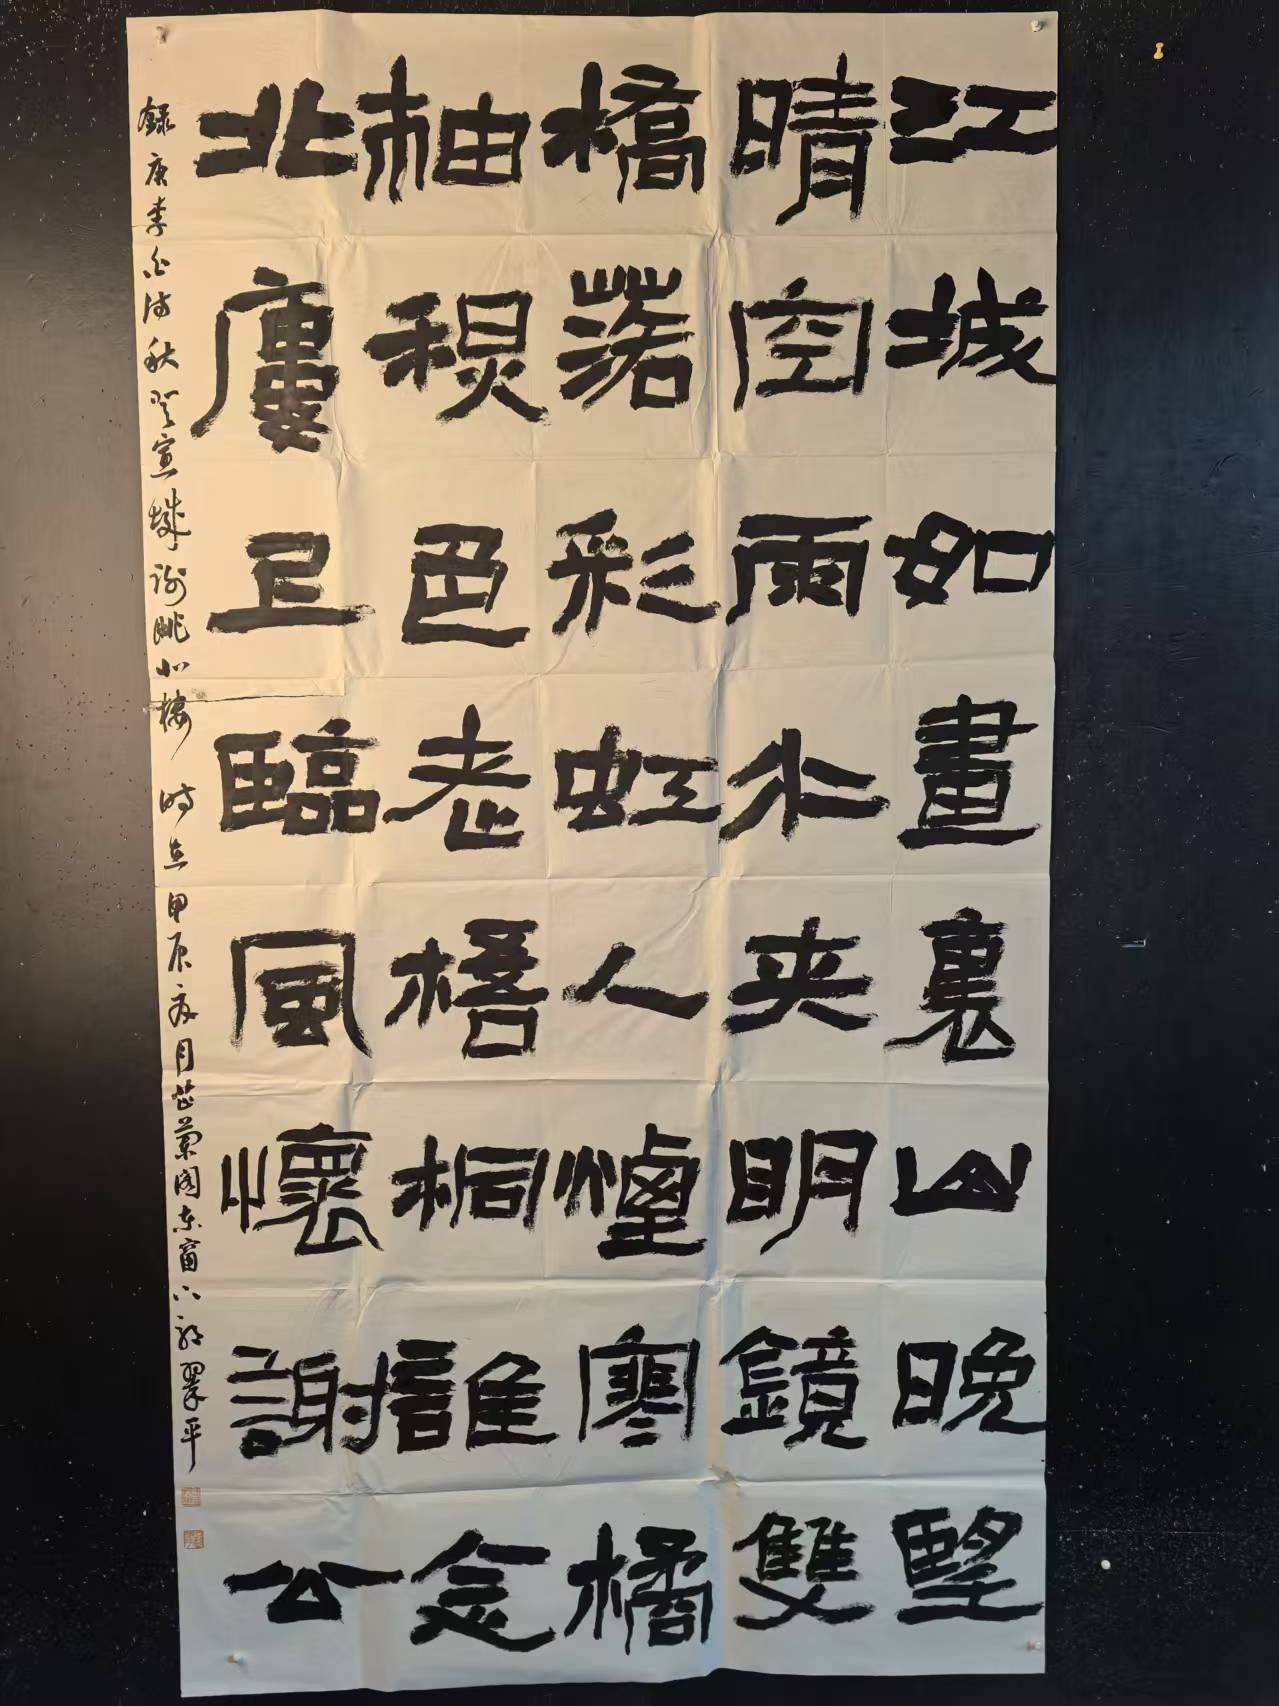 江城如畫裏山晚望
晴空雨水夾明鏡雙
橋落彩虹人煙寒橘
柚稷色老梧桐誰念
北廔上臨風懷謝公
錄唐李白詩秋登宣城謝朓北樓 時在甲辰 月芷蘭閣東窗下 翠平